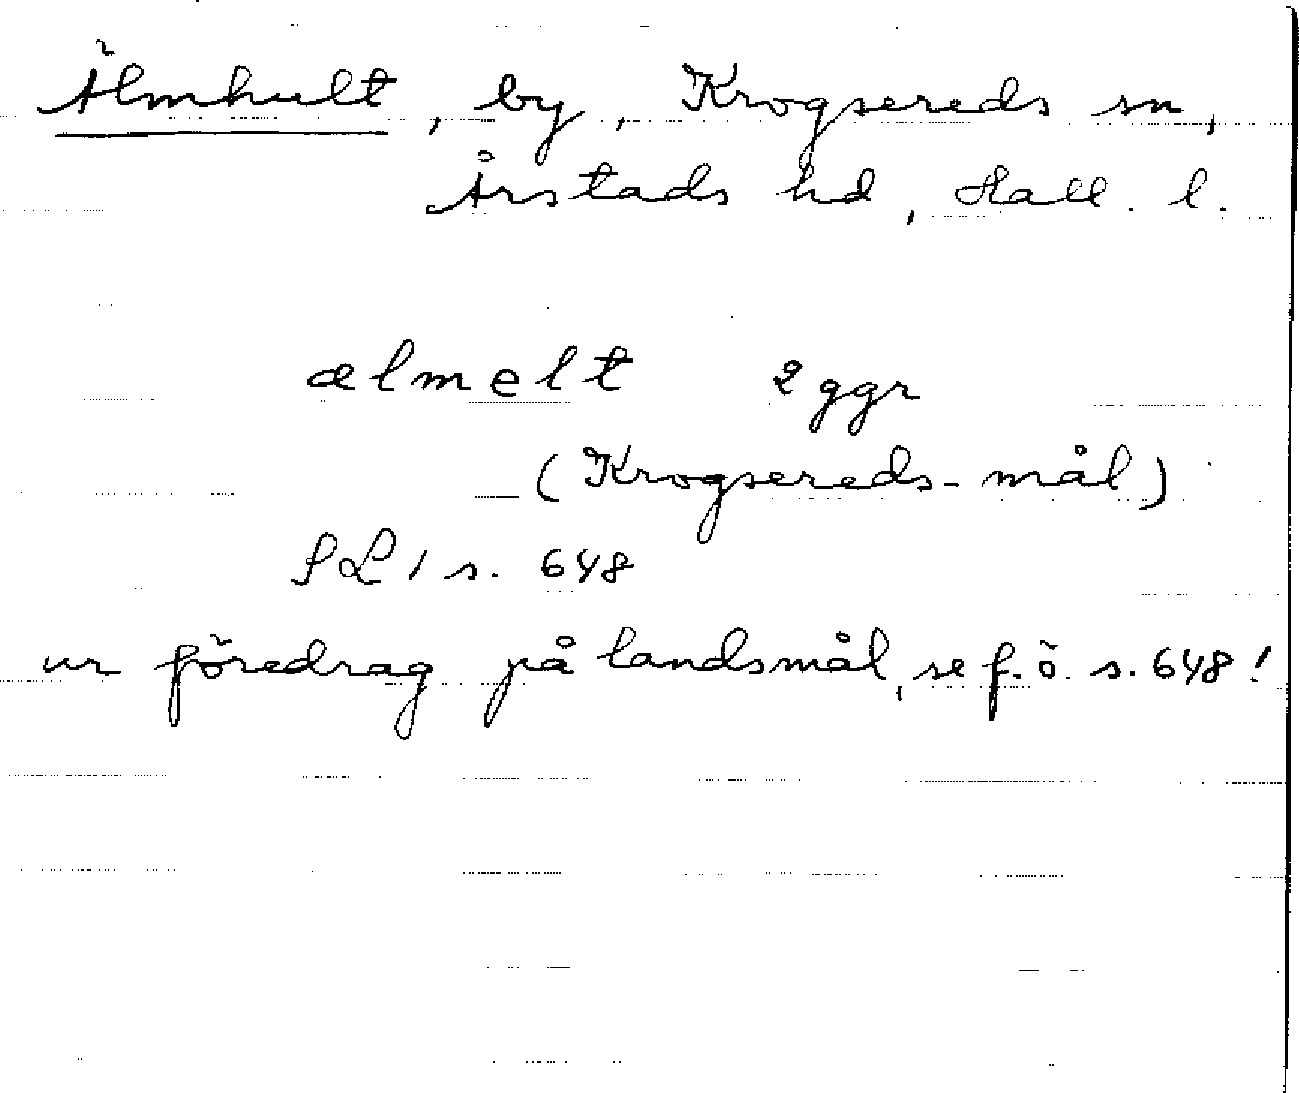 Älmhult, by, Krogsereds sn,
Årstads hd, Hall. l.
ælmelt 2 ggr
(Krogsereds-mål)
SL 1 s. 648
ur föredrag på landsmål, se f.ö. s. 648!